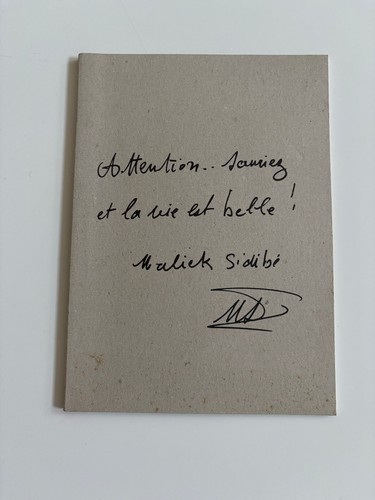 Attention.. Souriez
et la vie est belle !
Malick Sidibé